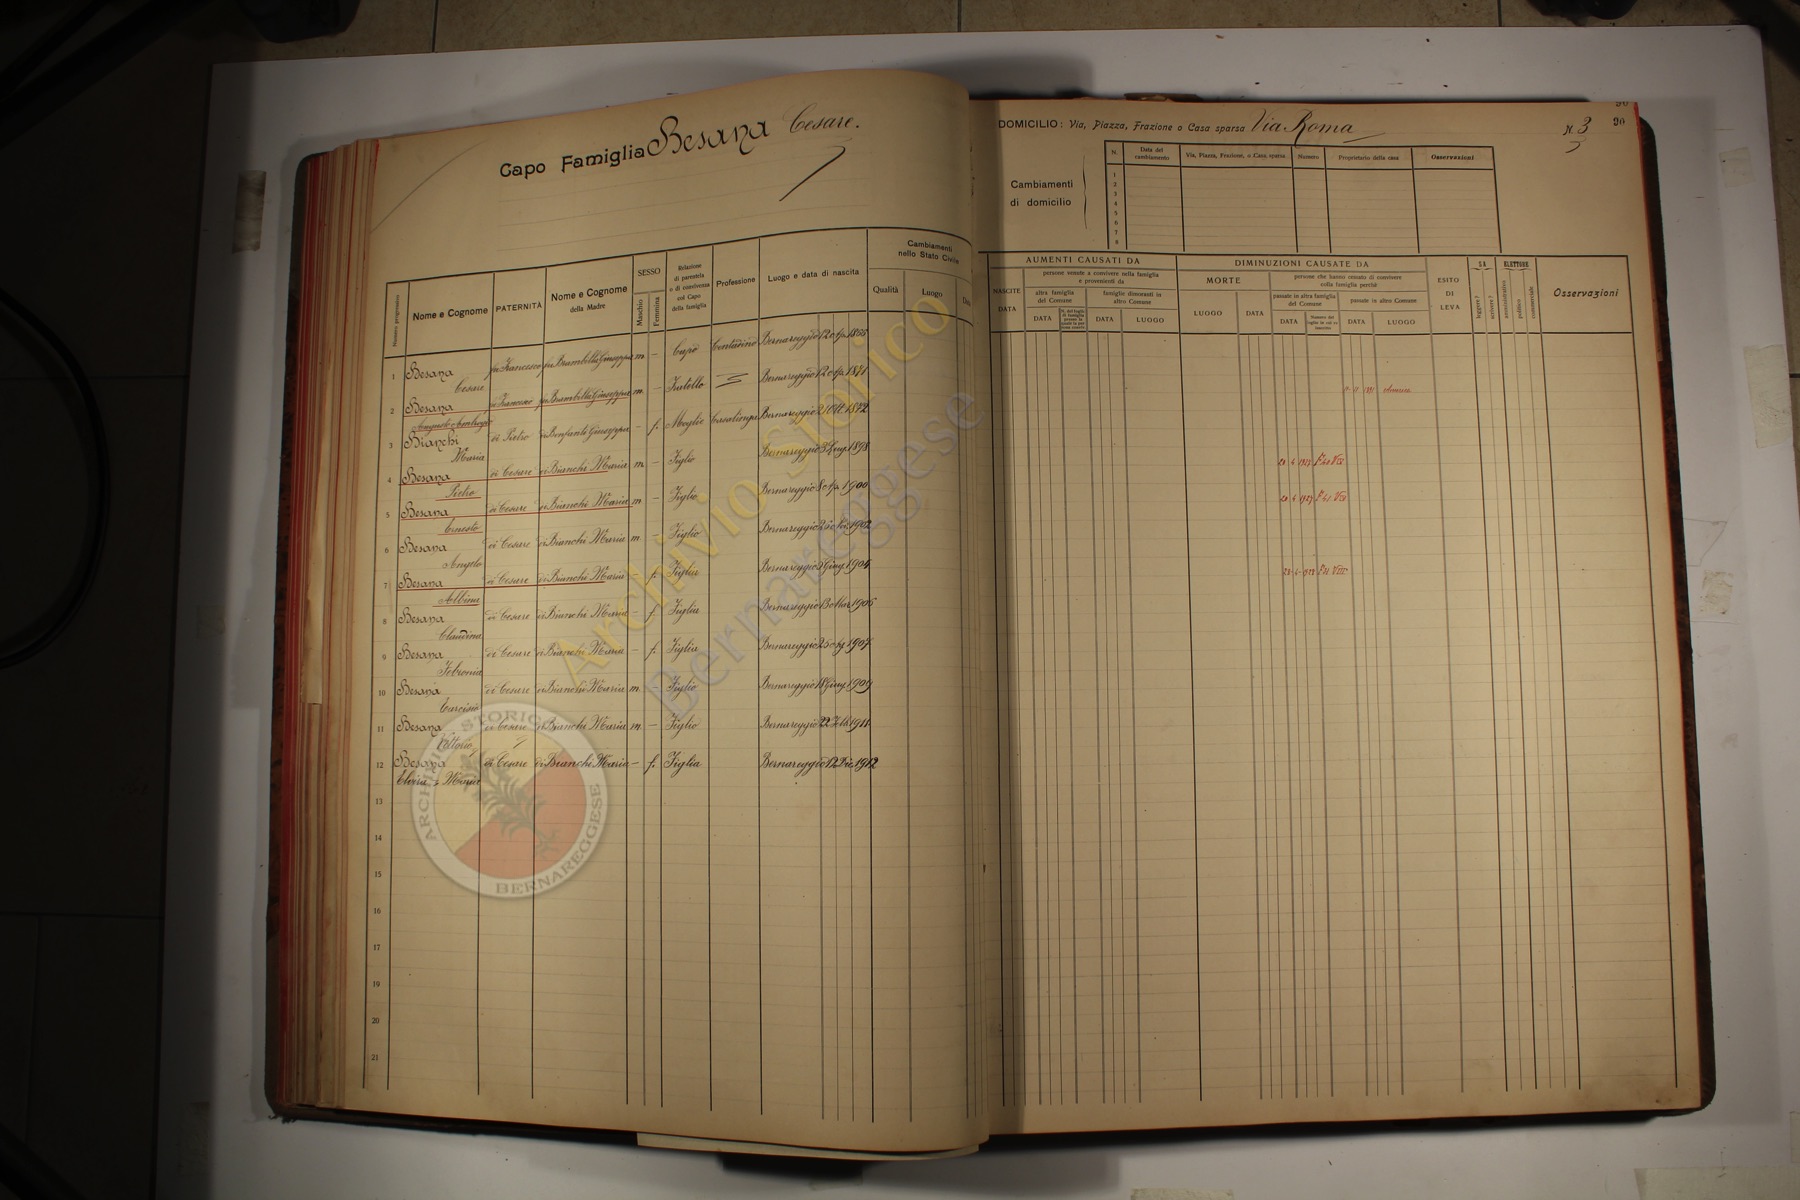 Capo Famiglia Besana Cesare.
Numero progressivo
Nome e Cognome
PATERNITÀ
Nome e Cognome
della Madre
SESSO
Maschio
Femmina
Relazione
di parentela
o di convivenza
col Capo
della famiglia
Professione
Luogo e data di nascita
Cambiamenti
nello Stato Civile
Qualità
Luogo
Data
1 Besana fu Francesco fu Brambilla Giuseppa m. — Capo Contadino Bernareggio
Cesare
2 Besana fu Francesco fu Brambilla Giuseppa m. — Fratello Bernareggio 12 1871
3 Bianchi di Pietro di Bonfanti Giuseppa — f. Moglie Casalinga Bernareggio 21 Ott. 1872
Maria
4 Besana di Cesare di Bianchi Maria m — Figlio Bernareggio 3 Lug. 1898
Pietro
5 Besana di Cesare di Bianchi Maria m — Figlio Bernareggio 8 1900
Ernesto
6 Besana di Cesare di Bianchi Maria m — Figlio Bernareggio 1902
Angelo
7 Besana di Cesare di Bianchi Maria — f. Figlia Bernareggio Giug. 1904
Albina
8 Besana di Cesare di Bianchi Maria — f. Figlia Bernareggio 13 Mar. 1906
Claudina
9 Besana di Cesare di Bianchi Maria — f. Figlia Bernareggio 25 1907
Febronia
10 Besana di Cesare di Bianchi Maria m — Figlio Bernareggio 18 Giug. 1909
Tarcisio
11 Besana di Cesare di Bianchi Maria m. — Figlio Bernareggio 22 Feb. 1911
Vittorio
12 Besana di Cesare di Bianchi Maria — f. Figlia Bernareggio 12 Dic. 1912
Elvira Maria
13
14
15
16
17
18
19
20
21
90
DOMICILIO: Via, Piazza, Frazione o Casa sparsa Via Roma N. 3 90
Cambiamenti
di domicilio
N.
Data del
cambiamento
Via, Piazza, Frazione, o Casa sparsa
Numero
Proprietario della casa
Osservazioni
1
2
3
4
5
6
7
8
AUMENTI CAUSATI DA
NASCITE
DATA
persone venute a convivere nella famiglia
e provenienti da
altra famiglia
del Comune
DATA
famiglie dimoranti in
altro Comune
DATA
LUOGO
DIMINUZIONI CAUSATE DA
MORTE
LUOGO
DATA
persone che hanno cessato di convivere
colla famiglia perchè
passate in altra famiglia
del Comune
DATA
passate in altro Comune
DATA
LUOGO
ESITO
DI
LEVA
SA
leggere?
scrivere?
ELETTORE
amministrativo
politico
commerciale
Osservazioni
Archivio Storico
Bernareggese
ARCHIVIO STORICO
BERNAREGGESE